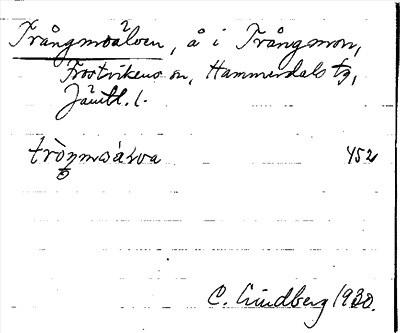 Trångmoälven, å i Trångmon,
Frostvikens sn, Hammerdals tg,
Jämtl. l.
452
C. Lindberg 1930.